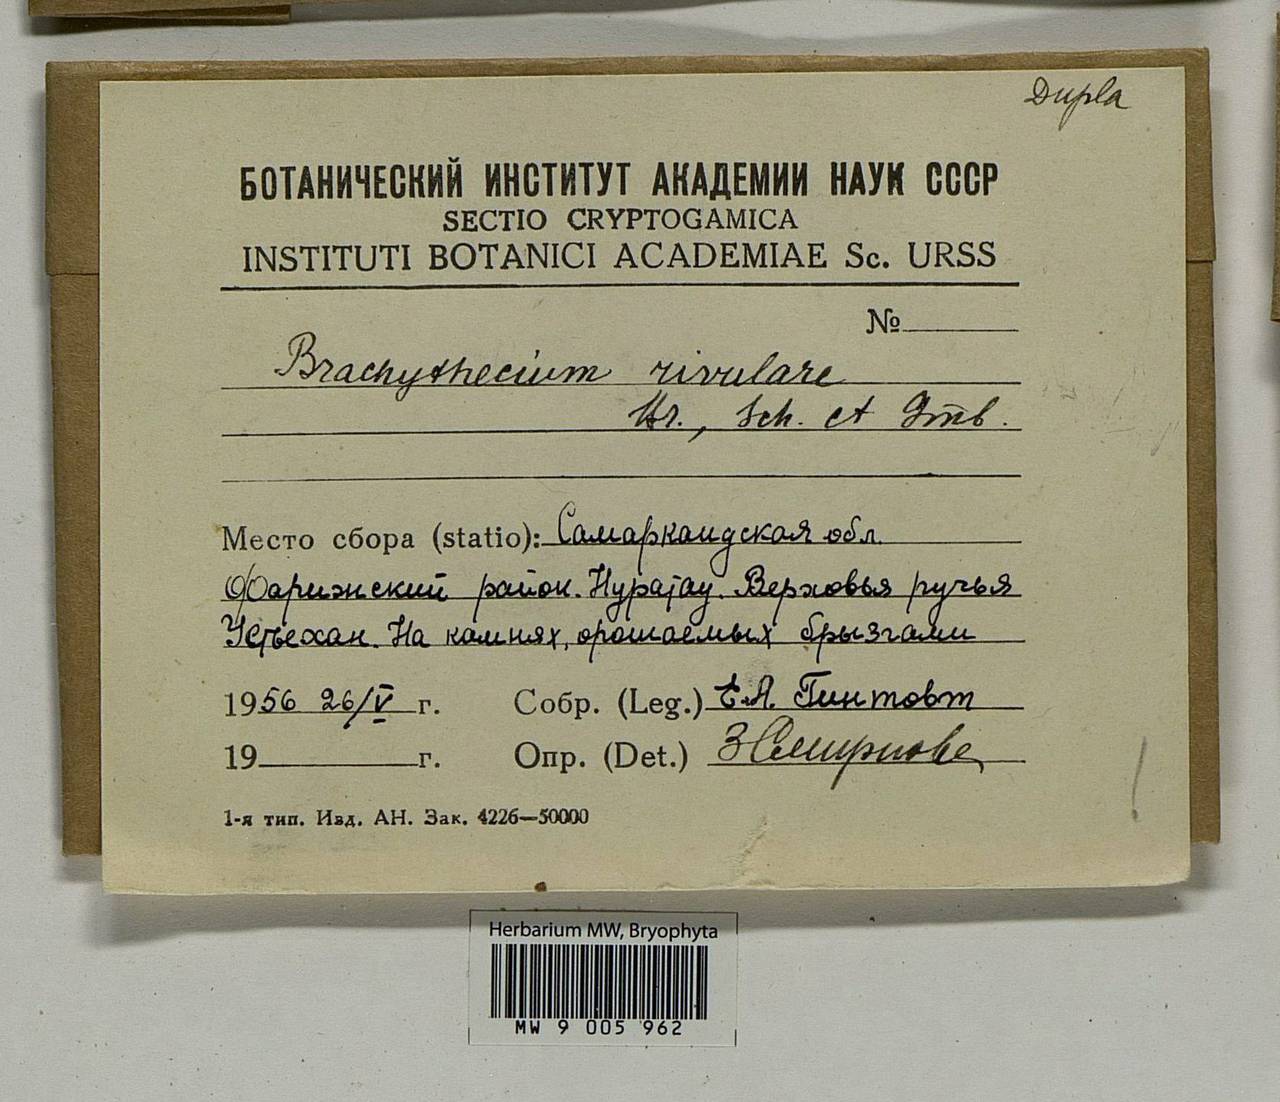 Dupla
БОТАНИЧЕСКИЙ ИНСТИТУТ АКАДЕМИИ НАУК СССР
SECTIO CRYPTOGAMICA
INSTITUTI BOTANICI ACADEMIAE Sc. URSS
№
Brachythecium rivulare
Br., Sch. et Gmb.
Место сбора (statio): Самаркандская обл.
Фаришский район. Нуратау. Верховья ручья
На камнях, орошаемых брызгами
1956 26/V г. Собр. (Leg.) Е.А. Гинтовт
19 г. Опр. (Det.) З Смирнова
1-я тип. Изд. АН. Зак. 4226—50000
Herbarium MW, Bryophyta
MW 9 005 962